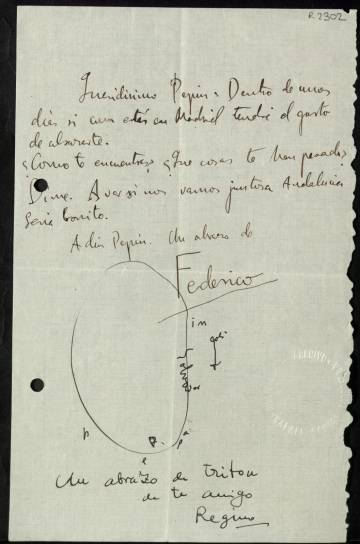 R2302
Queridisimo Pepin: Dentro de unos
dias si aun estás en Madrid tendré el gusto
de abrazarte.
¿Como te encuentras? ¿Que cosas te han pasado?
Dime. A ver si nos vamos juntos a Andalucia
Seria bonito.
Adios Pepin. Un abrazo de
Federico
in
p
Un abrazo de triton
de tu amigo
Regino